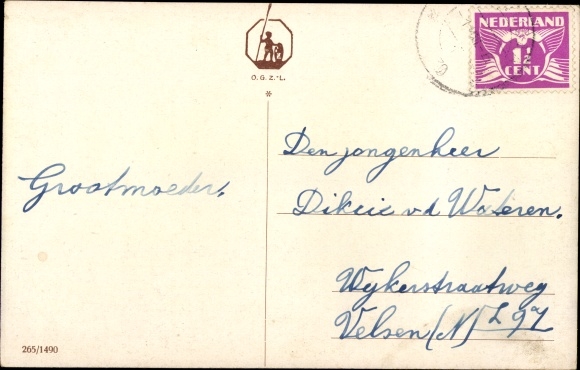 O.G.Z.-L.
*
NEDERLAND
1½
CENT
Grootmoeder.
Den jongenheer
Dikcie v d Wateren.
Wijkerstraatweg
Velsen (N)
265/1490